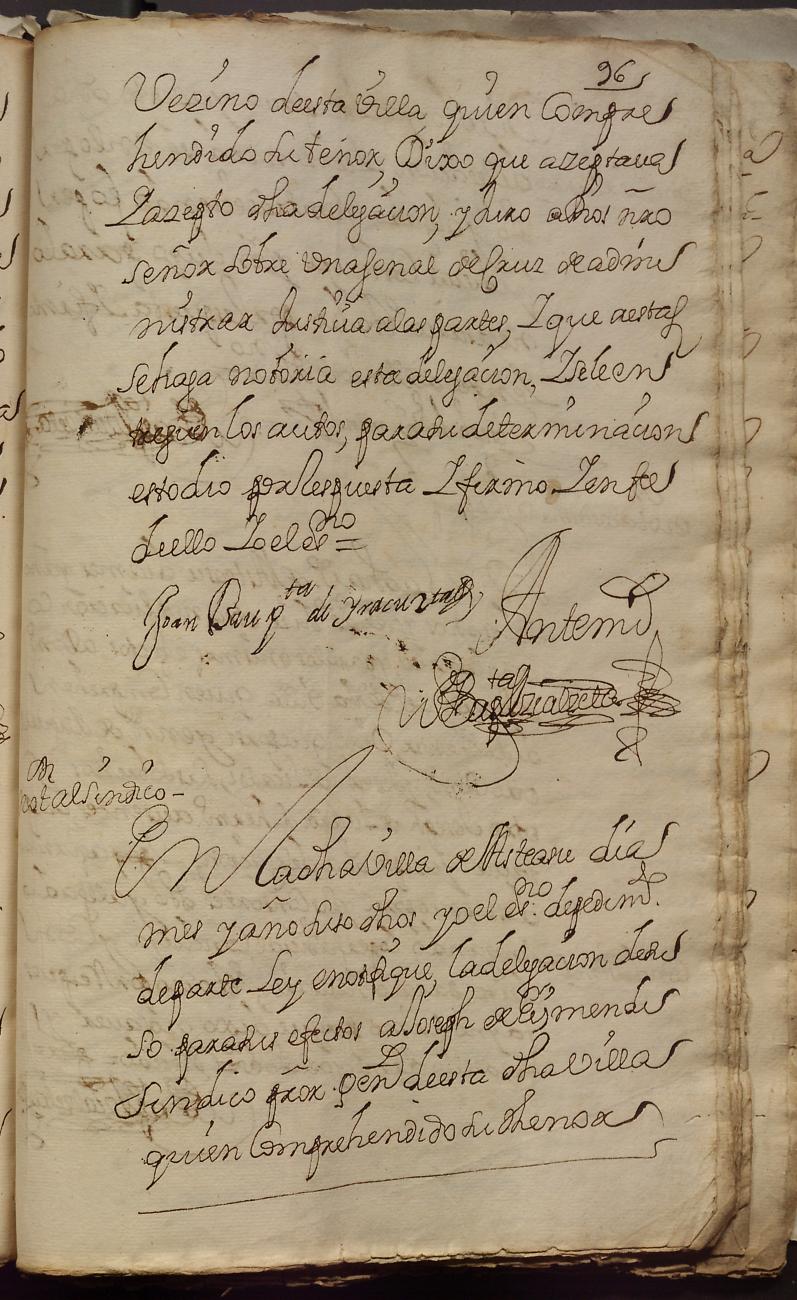 96
Vezino deesta Villa quien Compre
hendido su tenor, Dixo que azeptaua
Y azepto dha delegacion, y Juro a Dios nro
señor sobre una señal de Cruz de admi
nistrar Justicia a las partes, Y que a estas
se haga notoria esta delegacion, Y se le en
treguen los autos, para su determinacion
esto dio por Respuesta Y firmo Y en fee
de ello Yo el essno =
Joan Baupta de
Antemi
Bapta
Not al Sindico -
En la dha Villa de Asteasu dia
mes y año suso dhos yo el essno de pedimto
de parte Ley e notifique, la delegacion de su
so para sus efectos a Joseph de Lismendi
Sindico pror Gen deesta dha Villa
quien Comprehendido su thenor